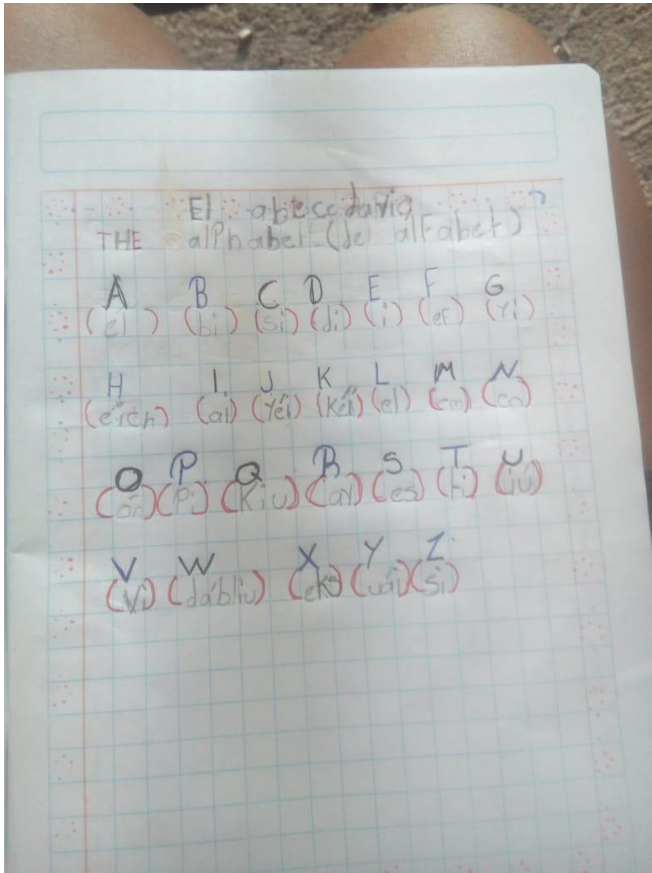 El abecedario
THE alphabet (de alfabet)
A B C D E F G
(ei) (bi) (si) (di) (i) (ef) (Yi)
H I J K L M N
(eich) (ai) (Yéi) (Kéi) (el) (em) (en)
O P Q R S T U
(ou) (Pi) (Kiu) (ar) (es) (ti) (iú)
V W X Y Z
(Vi) (dábliu) (eks) (uái) (si)